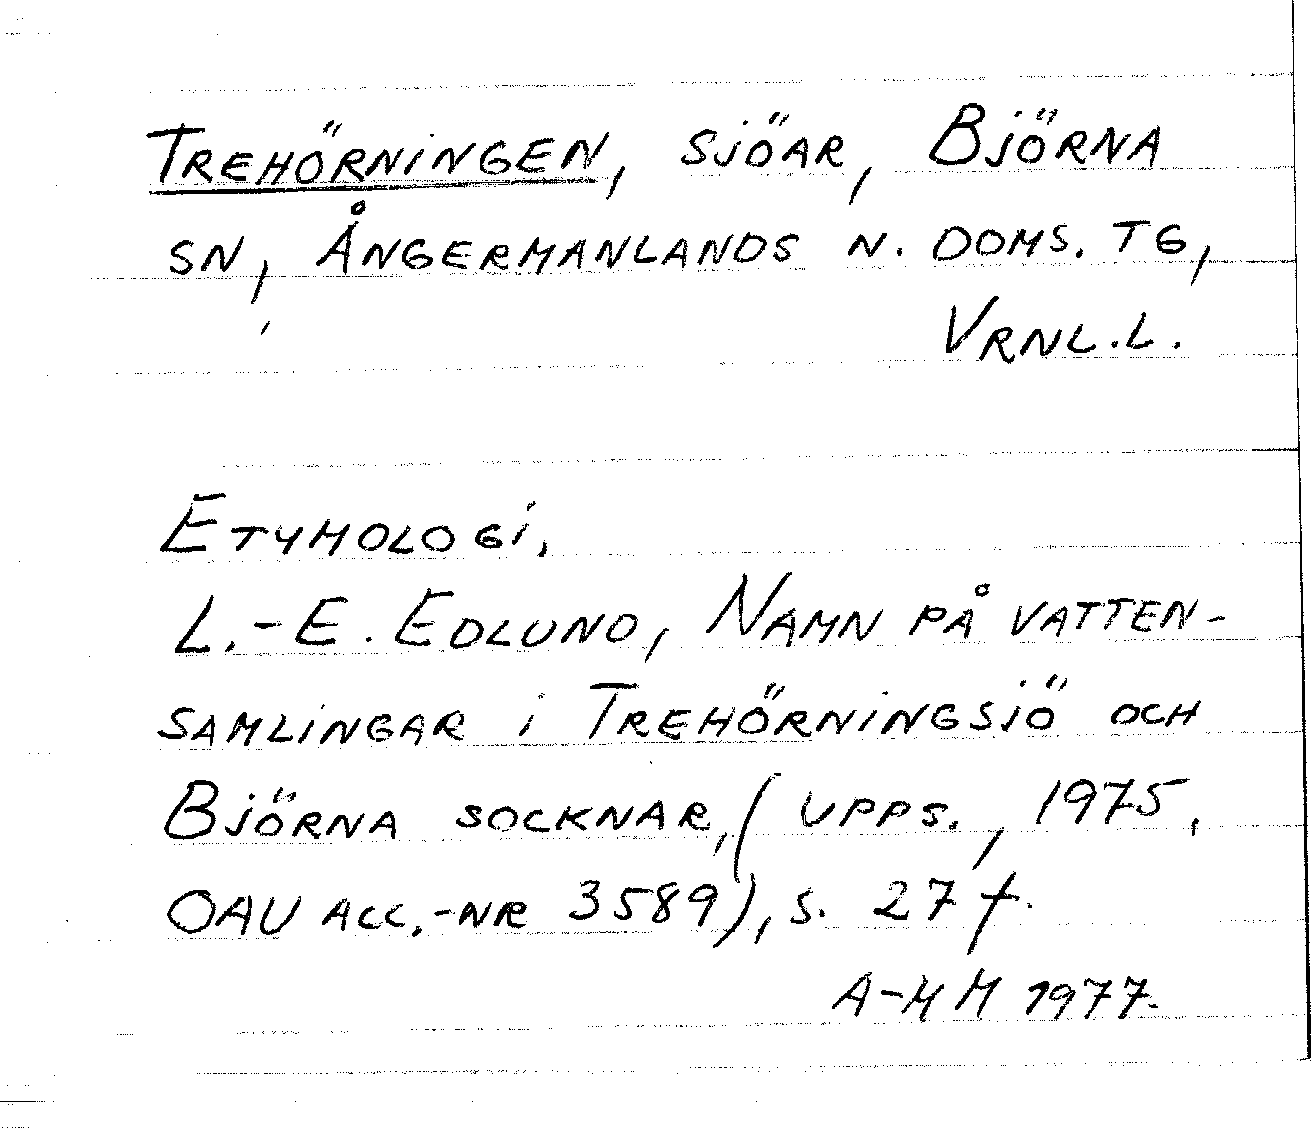 TREHÖRNINGEN, SJÖAR, BJÖRNA
SN, ÅNGERMANLANDS N. DOMS. TG,
VRNL.L.
ETYMOLOGI.
L.-E. EDLUND, NAMN PÅ VATTEN-
SAMLINGAR I TREHÖRNINGSJÖ OCH
BJÖRNA SOCKNAR, (UPPS., 1975,
OAU ACC.-NR 3589), S. 27 f.
A-MM 1977.